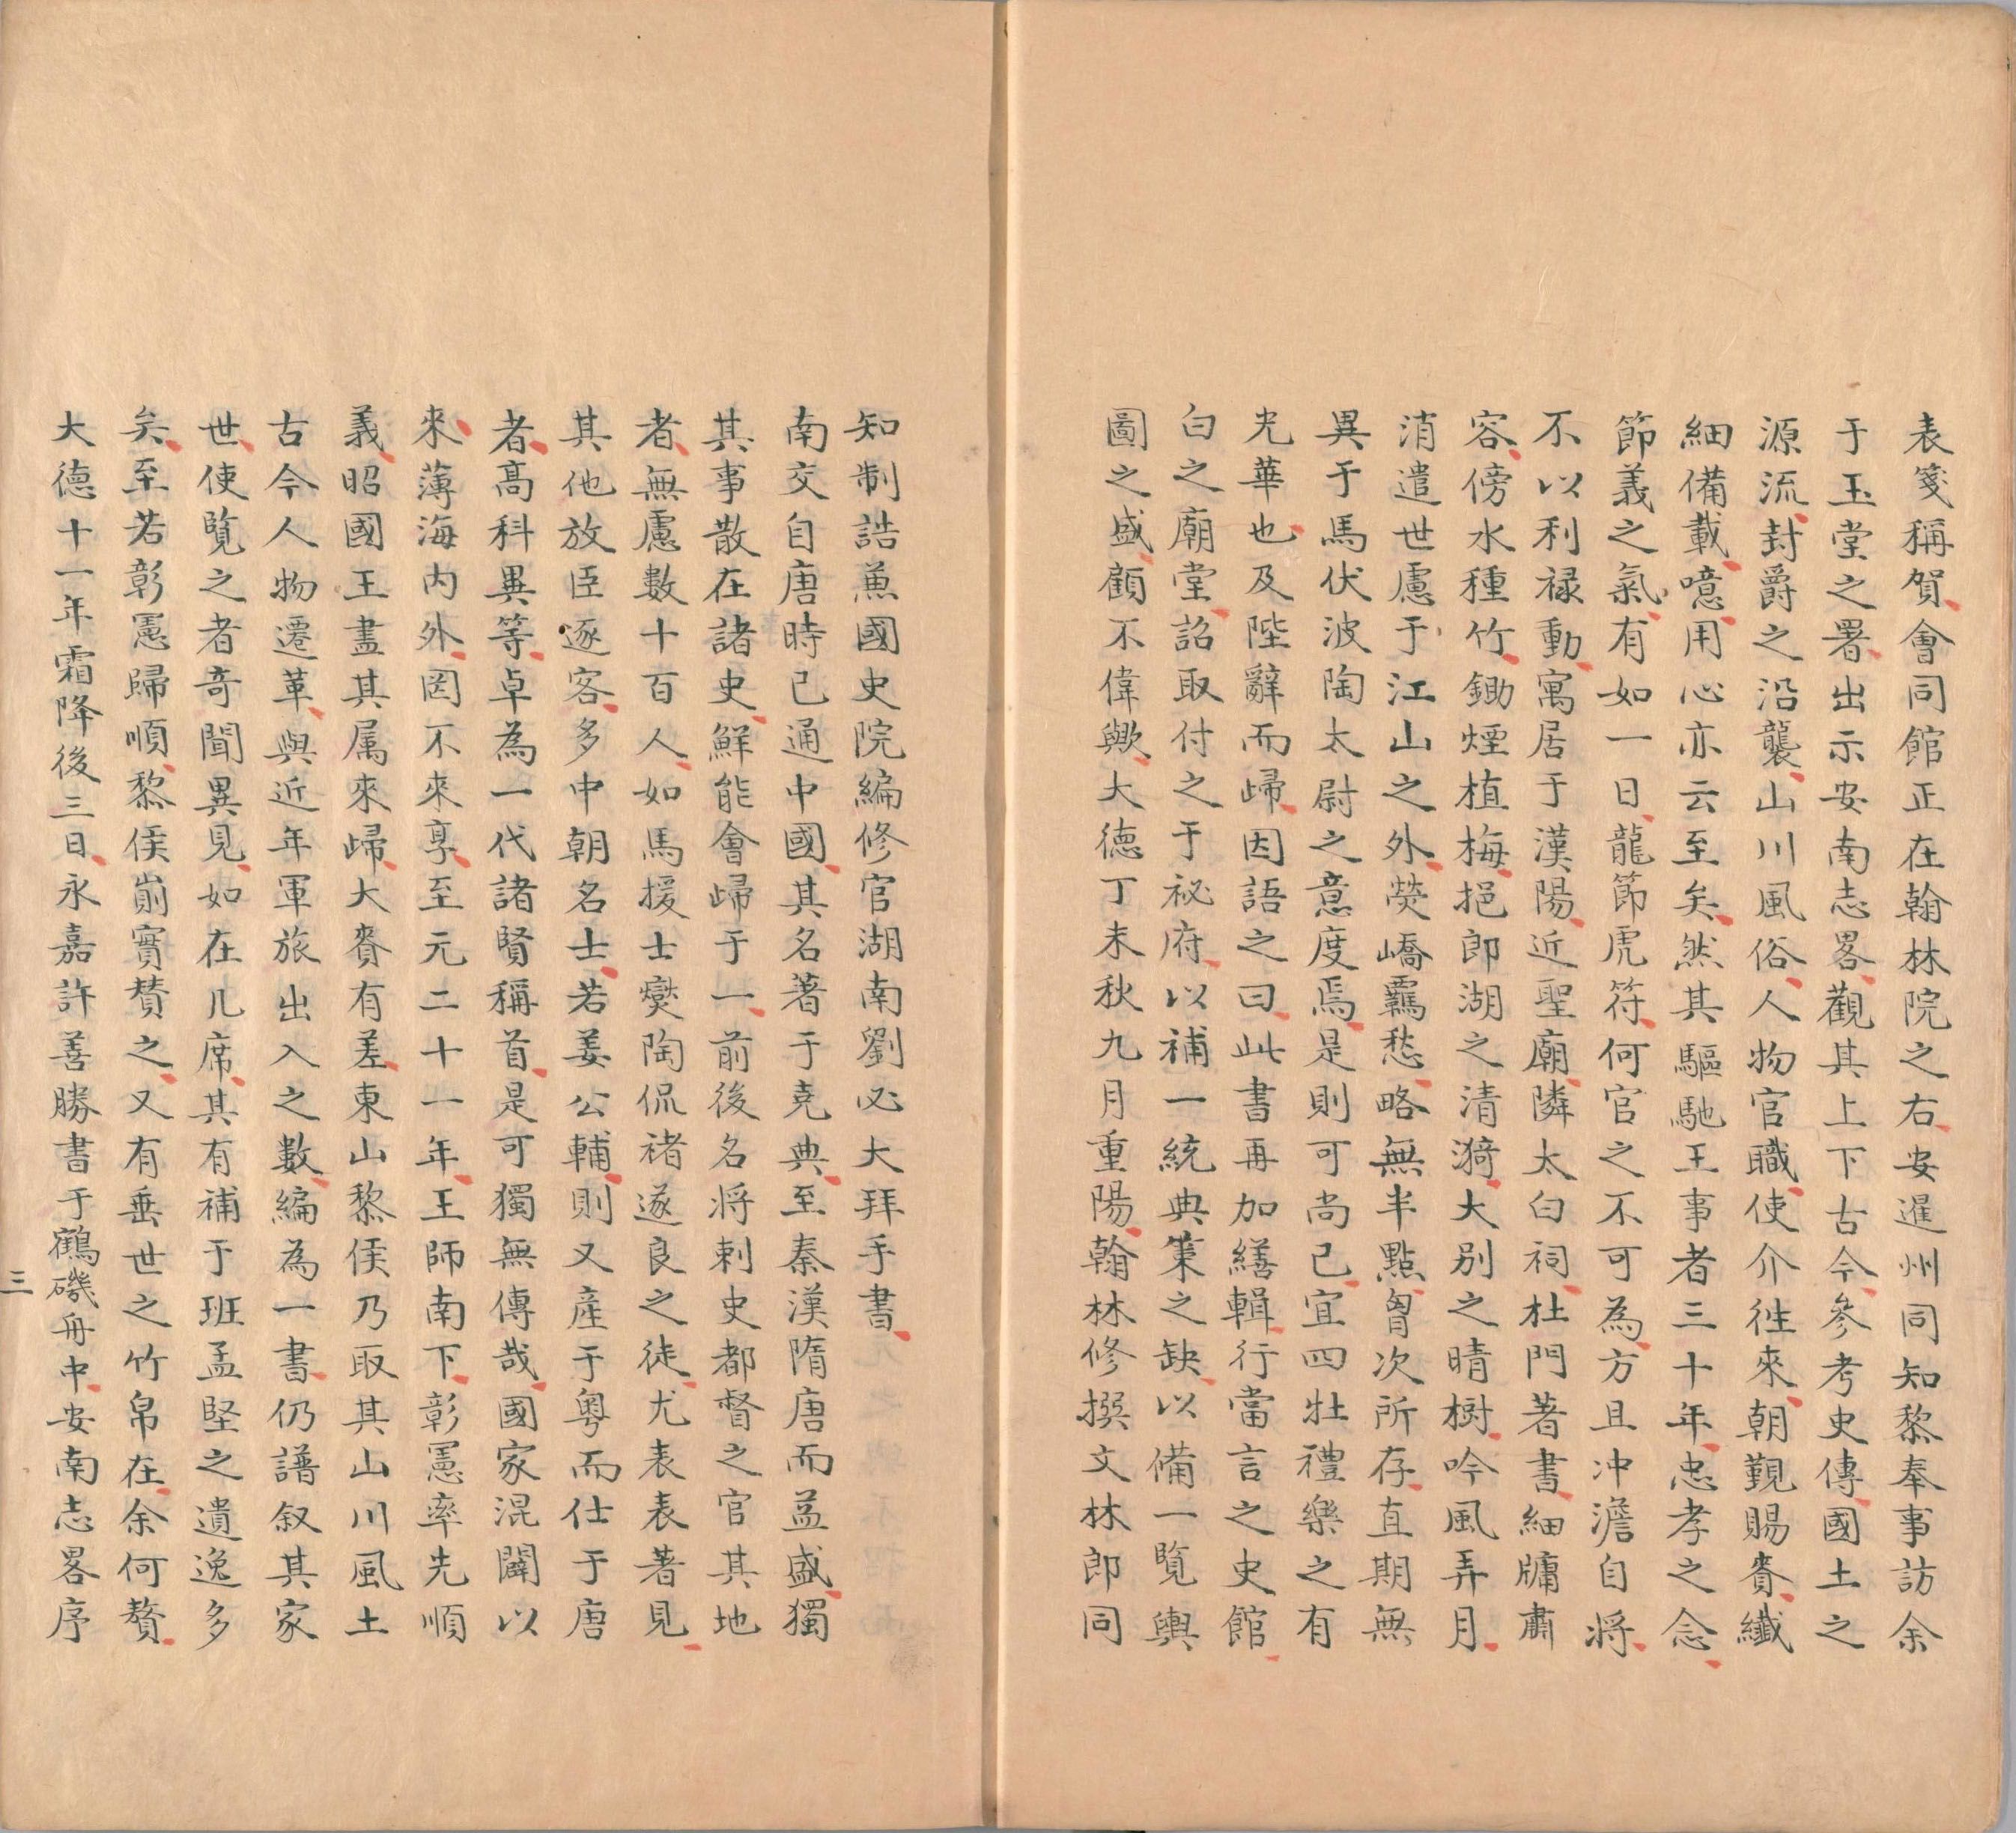 表箋稱賀會同館正在翰林院之右安暹州同知黎奉事訪余
于玉堂之署出示安南志畧觀其上下古今參考史傳國土之
源流封爵之沿襲山川風俗人物官職使介徃來朝覲賜賚纖
細備載噫用心亦云至矣然其驅馳王事者三十年忠孝之念
節義之氣有如一日龍節虎符何官之不可為方且冲澹自將
不以利祿動寓居于漢陽近聖廟隣太白祠杜門著書細牗肅
容傍水種竹鋤煙植梅挹郎湖之清漪大別之晴樹吟風弄月
消遣世慮于江山之外熒嶠羈愁略無半點胷次所存直期無
異于馬伏波陶太尉之意度焉是則可尚已宜四牡禮樂之有
光華也及陛辭而歸因語之曰此書再加繕輯行當言之史館
白之廟堂詔取付之于祕府以補一統典策之缺以備一覽輿
圖之盛顧不偉歟大德丁未秋九月重陽翰林修撰文林郎同
知制誥兼國史院編修官湖南劉必大拜手書
南交自唐時已通中國其名著于堯典至秦漢隋唐而益盛獨
其事散在諸史鮮能會歸于一前後名將刺史都督之官其地
者無慮數十百人如馬援士燮陶侃禇遂良之徒尤表表著見
其他放臣逐客多中朝名士若姜公輔則又產于粵而仕于唐
者高科異等卓為一代諸賢稱首是可獨無傳哉國家混闢以
來薄海内外罔不來享至元二十一年王師南下彰憲率先順
義昭國王盡其属來歸大賚有差東山黎侯乃取其山川風土
古今人物遷革與近年軍旅出入之數編為一書仍譜叙其家
世使覽之者奇聞異見如在几席其有補于班孟堅之遺逸多
矣至若彰憲歸順黎侯前實贊之又有垂世之竹帛在余何贅
大德十一年霜降後三日永嘉許善勝書于鶴磯舟中安南志畧序
三